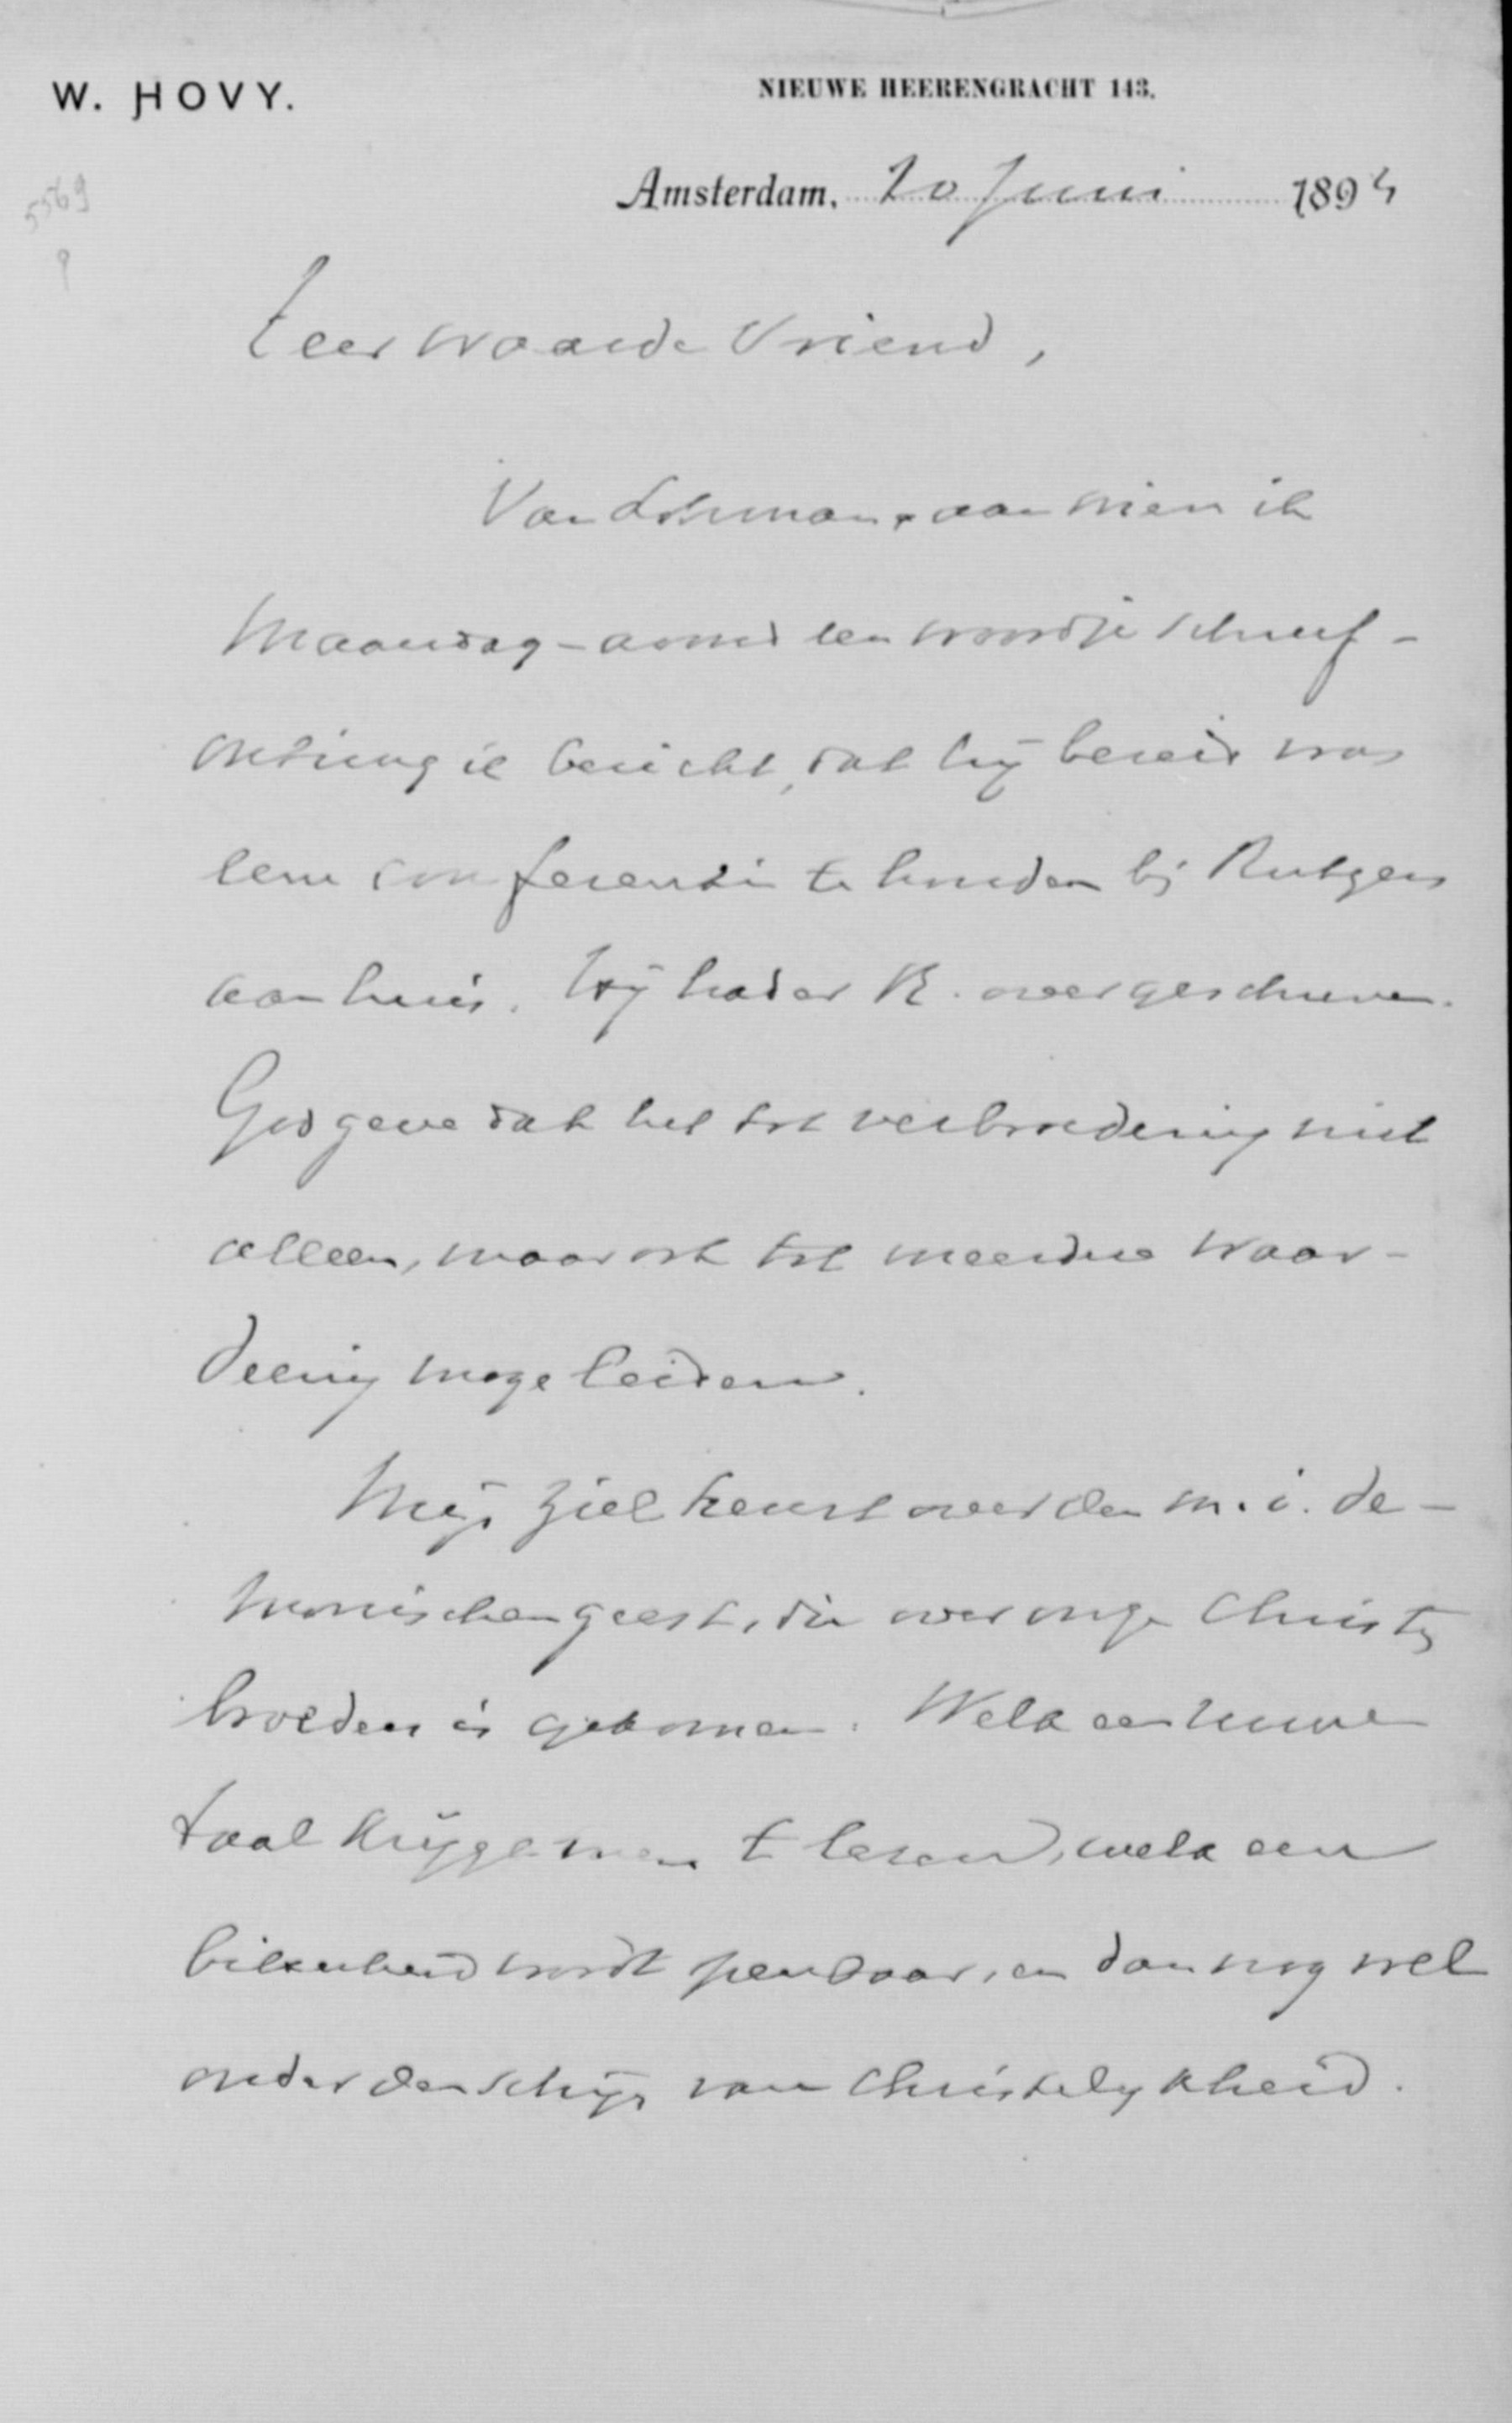 W. HOVY.
NIEUWE HEERENGRACHT 143.
Amsterdam, 20 Juni 1894
5569
Zeer waarde Vriend,
Van Lohman, aan wien ik
Maandag-avond een woordje schreef-
ontving ik bericht, dat hij bereid was
eene conferentie te houden bij Rutgers
aan huis. Hij had er R. over geschreven.
God geve dat het tot verbroedering niet
alleen, maar ook tot meerdere waar-
deering moge leiden.
Mijn ziel treurt over den m.i. de-
monischen geest, die over onze Christ.
broeders is gekomen. Welk een ruwe
taal krijgt men te lezen, welk een
bitsheid wordt openbaar, en dan nog wel
onder den schijn van Christelijkheid.